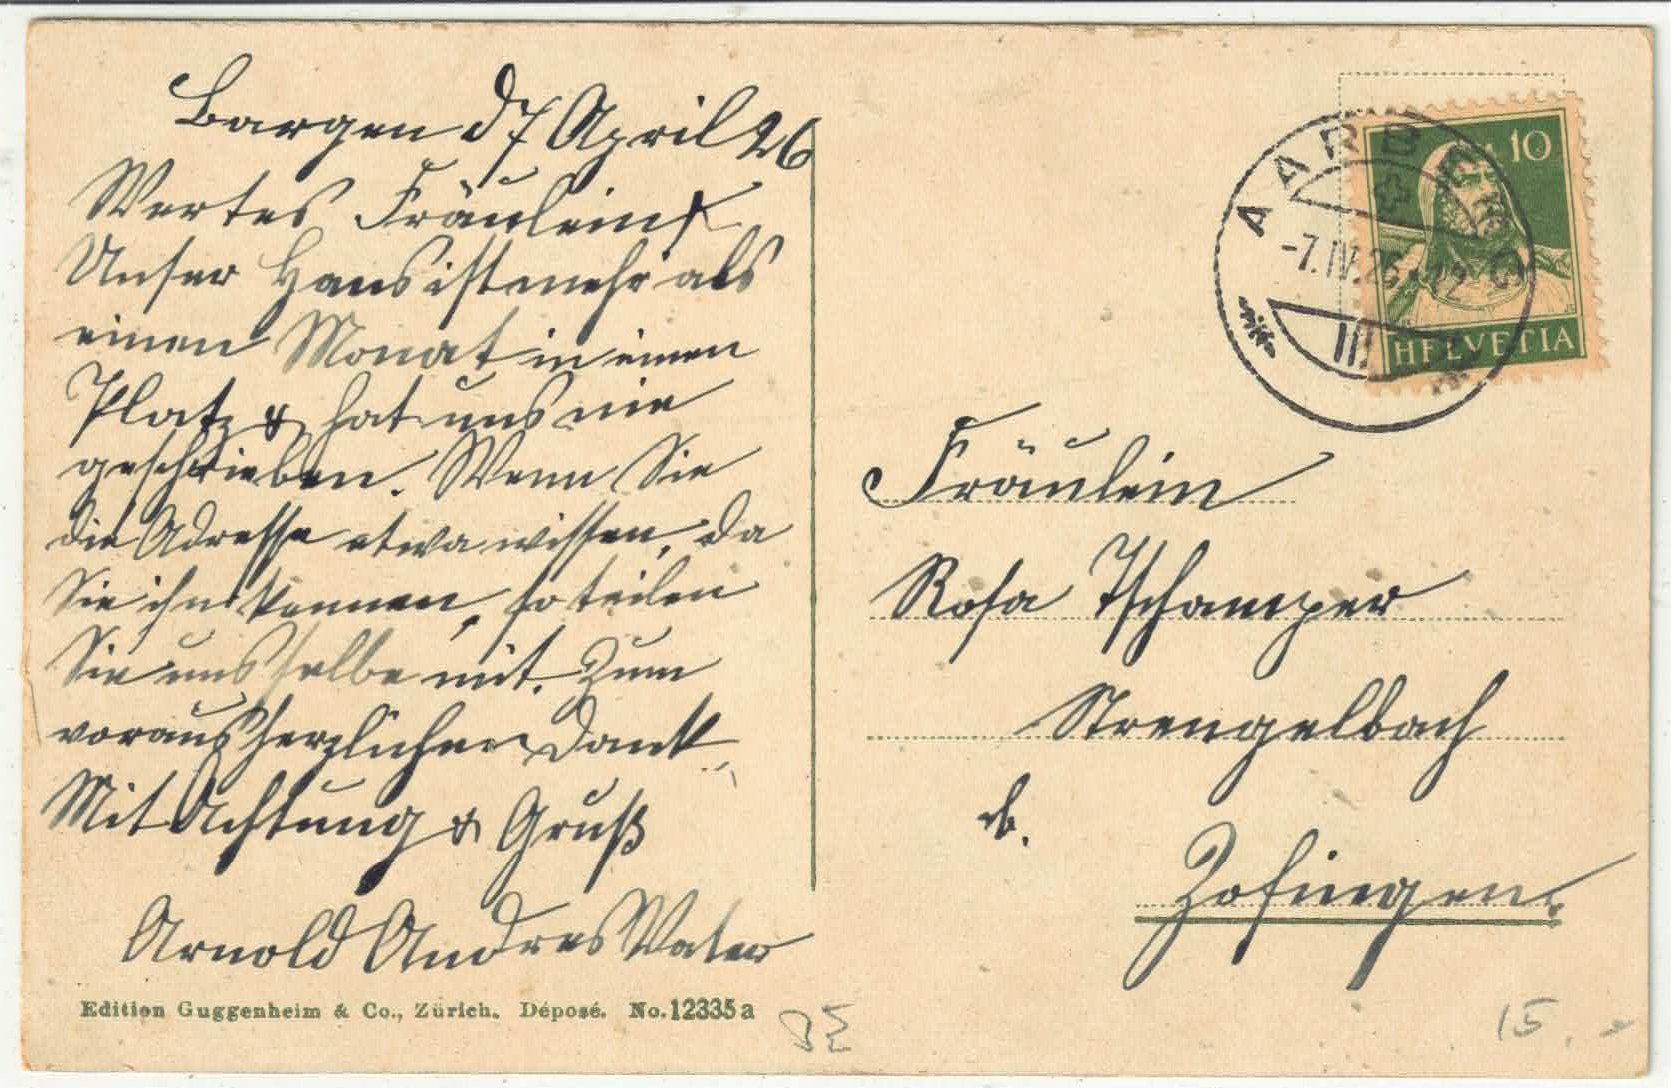 Bargen d 7 April 26
Wertes Fräulein!
Unser Hans ist mehr als
einen Monat in einen
Platz & hat uns nie
geschrieben. Wenn Sie
die Adresse etwa wissen, da
Sie ihn kennen, so teilen
Sie uns selbe mit. Zum
voraus herzlichen Dank.
Mit Achtung & Gruß
Arnold Andres Vater
Edition Guggenheim & Co., Zürich. Déposé. No. 12335 a
AARBERG
-7.IV.26-12
III
10
HELVETIA
Fräulein
Rosa Tschamper
Strengelbach
b.
Zofingen.
15.-